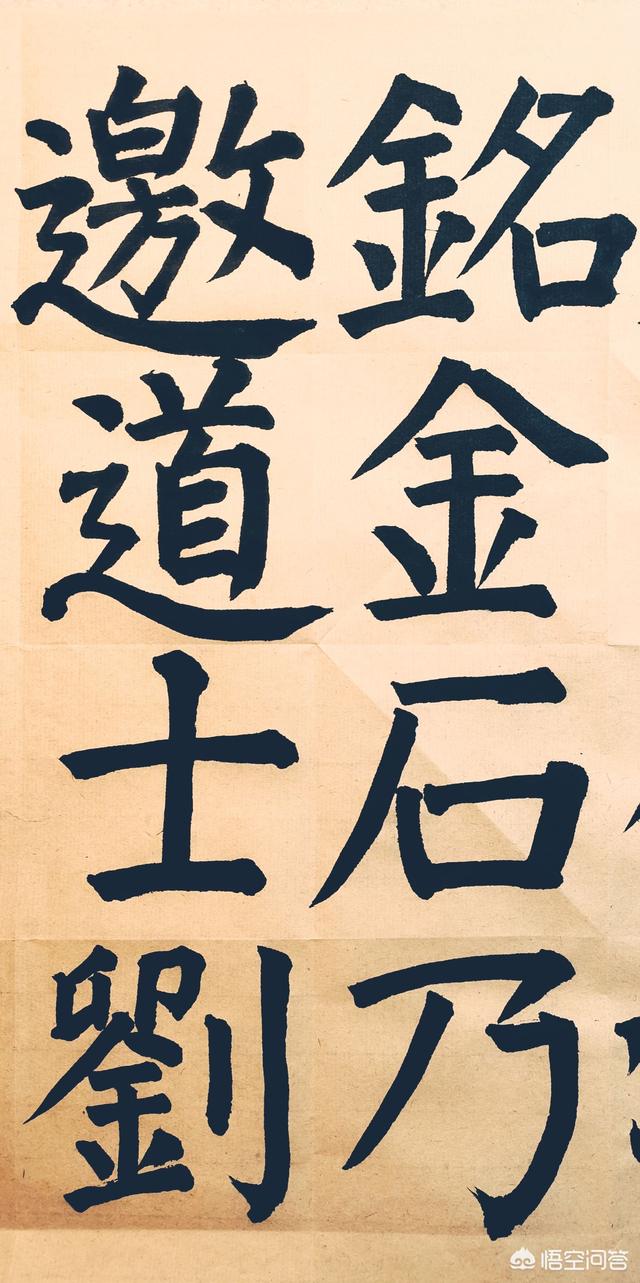 銘金石乃
邀道士劉
悟空问答